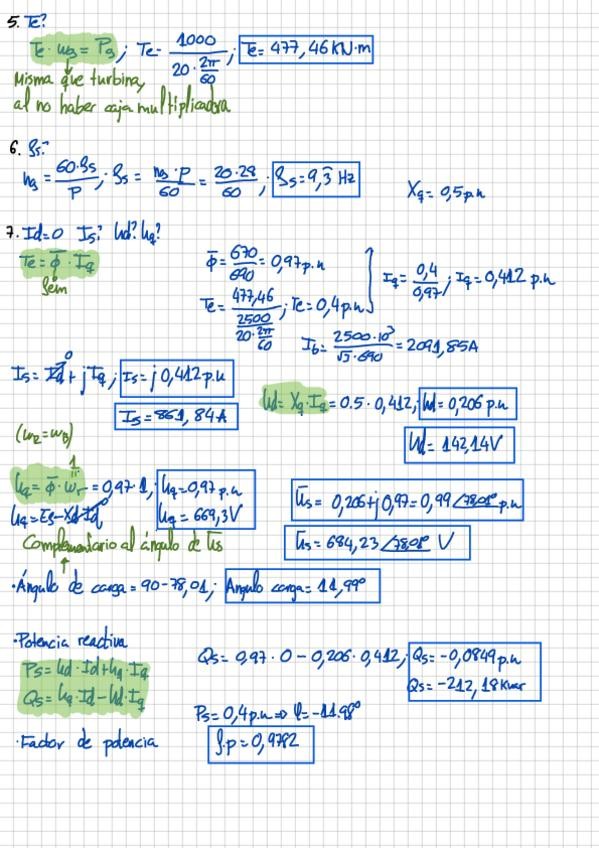 5. Te?
Te · ωg = Pg ; Te = 1000 / (20 · 2π/60) ; Te = 477,46 KN·m
Misma que turbina,
al no haber caja multiplicadora
6. fs?
ng = 60·fs / P ; fs = ng · P / 60 = 20·28 / 60 ; fs = 9,3̄ Hz
Xq = 0,5 p.u
7. Id=0 Is? Ud? Uq?
Te = Φ̄ · Iq
fem
Φ̄ = 670/690 = 0,97 p.u
Te = 477,46 / (2500 / (20 · 2π/60)) ; Te = 0,4 p.u
Iq = 0,4/0,97 ; Iq = 0,412 p.u
Ib = 2500·10³ / (√3 · 690) = 2091,85A
Is = Id + jIq ; Is = j 0,412 p.u
0
Is = 861,84A
Ud = Xq · Iq = 0.5 · 0,412 ; Ud = 0,206 p.u
Ud = 142,14V
(ωr = ωB)
1
Uq = Φ̄ · ωr = 0,97 · 1 ; Uq = 0,97 p.u
Uq = Es - Xd·Id 0
Uq = 669,3V
Ūs = 0,206 + j 0,97 = 0,99 ∠78,01° p.u
Ūs = 684,23 ∠78,01° V
Complementario al ángulo de Ūs
·Ángulo de carga = 90 - 78,01 ; Angulo carga = 11,99°
·Potencia reactiva
Ps = Ud · Id + Uq · Iq
Qs = Uq · Id - Ud · Iq
Qs = 0,97 · 0 - 0,206 · 0,412 ; Qs = -0,0849 p.u
Qs = -212,18 Kvar
Ps = 0,4 p.u ⇒ φ = -11.98°
·Factor de potencia
f.p = 0,9782